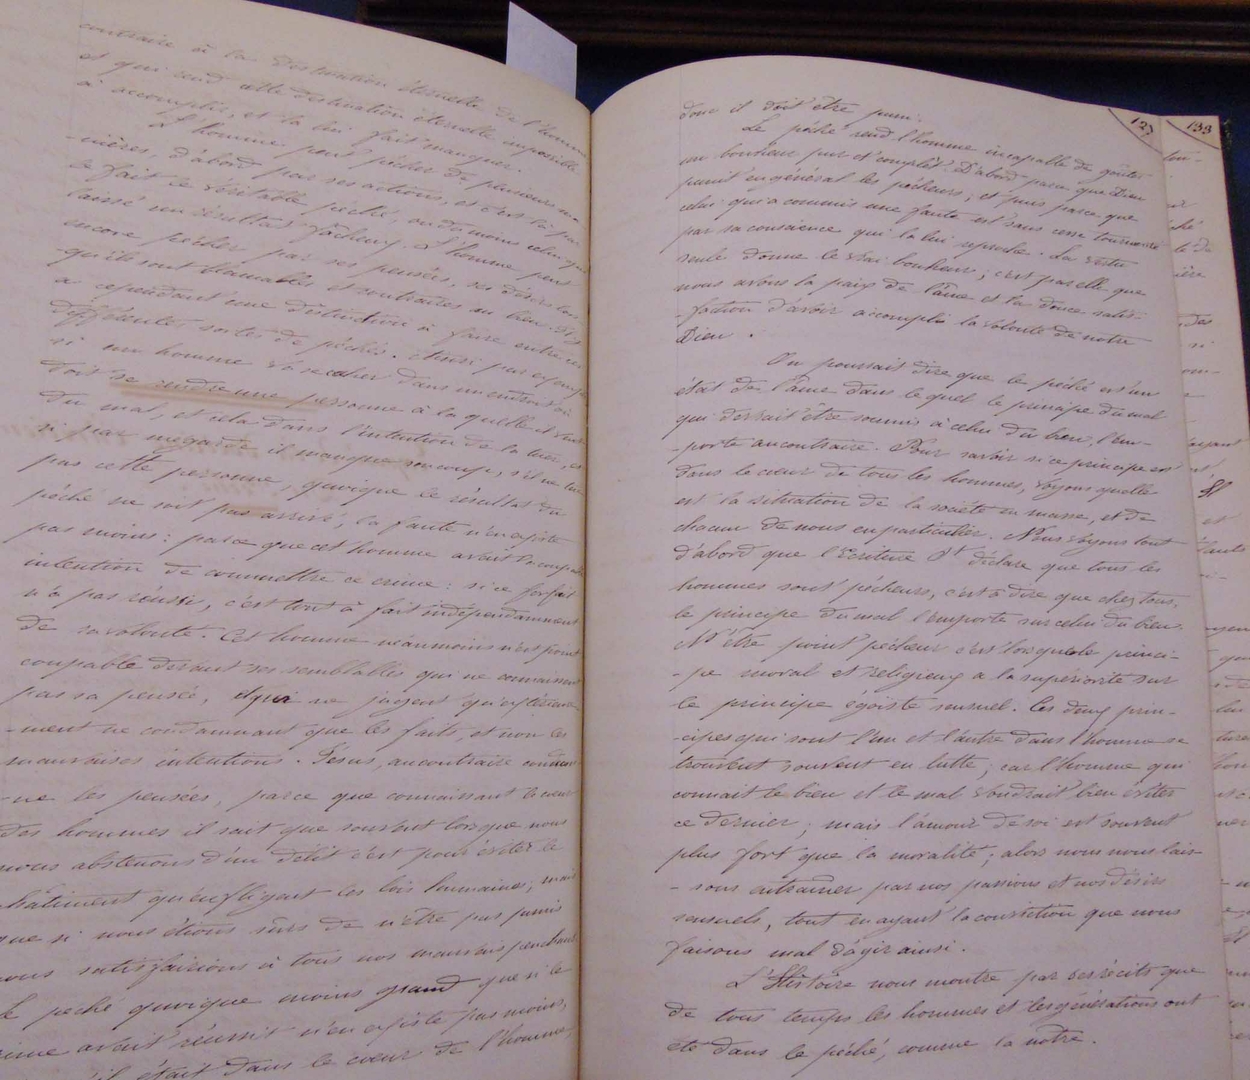 contraire à la destination éternelle de l'homme
et qui rend cette destination éternelle impossible
à accomplir, et la lui fait manquer.
L'homme peut pécher de plusieurs ma-
-nières, d'abord par ses actions, et c'est là par
le fait le véritable péché, ou du moins celui qui
laisse un résultat fâcheux. L'homme peut
encore pécher par ses pensées, ses désirs lors-
qu'ils sont blamables et contraires au bien. Il y
a cependant une distinction à faire entre ces
différentes sortes de péchés. Ainsi par exemple
si un homme va se cacher dans un endroit où
doit se rendre une personne à laquelle il veut
du mal, et cela dans l'intention de la tuer, et
si par mégarde il manque son coup, s'il ne tue
pas cette personne, quoique le résultat du
péché ne soit pas arrivé, la faute n'en existe
pas moins: parce que cet homme avait
intention de commettre ce crime: si ce forfait
n'a pas réussi, c'est tout à fait indépendamment
de sa volonté. Cet homme néanmoins n'est point
coupable devant ses semblables qui ne connaissent
pas sa pensée, et qui ne jugent qu'extérieure-
-ment ne condamnant que les faits, et non les
mauvaises intentions. Jésus, au contraire condam-
-ne les pensées, parce que connaissant le cœur
des hommes il sait que souvent lorsque nous
nous abstenons d'un délit c'est pour éviter le
châtiment qu'infligent les lois humaines, mais
que si nous étions sûrs de n'être pas punis
nous satisfairions à tous nos mauvais penchants.
Le péché quoique moins grand que si le
crime avait réussit n'en existe pas moins,
il était dans le cœur de l'homme,
127
donc il doit être puni.
Le péché rend l'homme incapable de goûter
un bonheur pur et complet. D'abord parce que Dieu
punit en général les pécheurs; et puis parce que
celui qui a commis une faute est sans cesse tourmenté
par sa conscience qui la lui reproche. La vertu
seule donne le vrai bonheur; c'est par elle que
nous avons la paix de l'âme et la douce satis-
-faction d'avoir accompli la volonté de notre
Dieu.
On pourrait dire que le péché est un
état de l'âme dans lequel le principe du mal
qui devrait être soumis à celui du bien, l'em-
-porte au contraire. Pour savoir si ce principe est
dans le cœur de tous les hommes, voyons quelle
est la situation de la société en masse, et de
chacun de nous en particulier. Nous voyons tout
d'abord que l'Ecriture Ste déclare que tous les
hommes sont pécheurs, c'est à dire que chez tous,
le principe du mal l'emporte sur celui du bien.
N'être point pécheur c'est lorsque le princi-
-pe moral et religieux a la supériorité sur
le principe égoïste sensuel. Ces deux prin-
-cipes qui sont l'un et l'autre dans l'homme se
trouvent souvent en lutte; car l'homme qui
connait le bien et le mal voudrait bien éviter
ce dernier; mais l'amour de soi est souvent
plus fort que la moralité; alors nous nous lais-
-sons entraîner par nos passions et nos désirs
sensuels, tout en ayant la conviction que nous
faisons mal d'agir ainsi.
L'Histoire nous montre par ses récits que
de tous temps les hommes et les générations ont
été dans le péché, comme la nôtre.
133